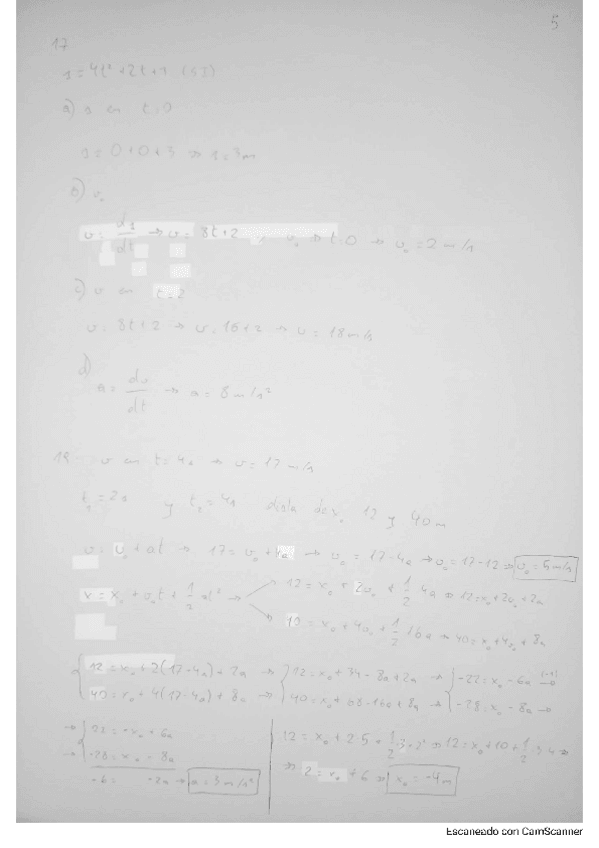 5
17
s = 4t² + 2t + 3 (SI)
a) s en t=0
s = 0+0+3 ⇒ s = 3m
b) v₀
v = ds/dt → v = 8t+2, v₀ ⇒ t=0 → v₀ = 2m/s
c) v en t=2
v = 8t+2 → v = 16+2 → v = 18m/s
d)
a = dv/dt → a = 8m/s²
v en t=4s → v = 17m/s
t₁ = 2s y t₂ = 4s dista de x₀ 12 y 40m
v = v₀ + at → 17 = v₀ + 4a → v₀ = 17-4a → v₀ = 17-12 → v₀ = 5m/s
x = x₀ + v₀t + 1/2 at² → 12 = x₀ + 2v₀ + 1/2 4a ⇒ 12 = x₀+2v₀+2a
40 = x₀ + 4v₀ + 1/2 16a ⇒ 40 = x₀+4v₀+8a
12 = x₀ + 2(17-4a) + 2a → 12 = x₀+34-8a+2a → -22 = x₀-6a (-1)
40 = x₀ + 4(17-4a) + 8a → 40 = x₀+68-16a+8a → -28 = x₀-8a →
→ 22 = -x₀ + 6a
→ -28 = x₀ - 8a
-6 = -2a → a = 3m/s²
12 = x₀ + 2·5 + 1/2 3·2² ⇒ 12 = x₀+10+1/2·3·4 ⇒
⇒ 2 = x₀ + 6 ⇒ x₀ = -4m
Escaneado con CamScanner